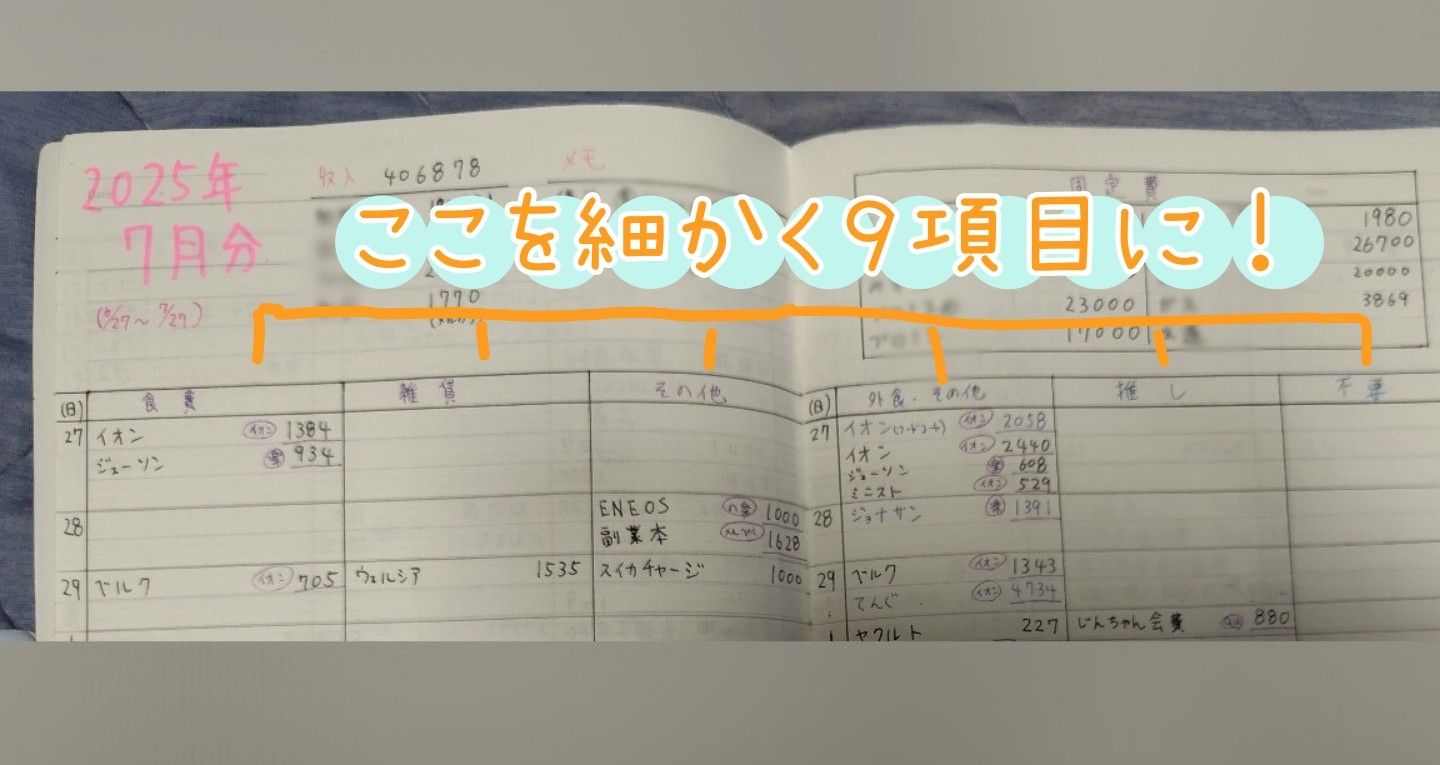 2025年
7月分
(6/27〜7/27)
収入 406878
メモ
ここを細かく9項目に!
1770
固定費
1980
26700
20000
23000 ガス 3869
17000
(日) 食費 雑貨 その他
27 イオン イオン 1384
ジェーソン 楽 934
28 ENEOS 1000
副業本 1628
29 ベルク イオン 705 ウェルシア 1535 スイカチャージ 1000
(日) 外食・その他 推し 不要
27 イオン(フードコート) イオン 2058
イオン イオン 2440
ジェーソン 楽 608
ミニスト イオン 529
28 ジョナサン 楽 1391
29 ベルク イオン 1343
てんぐ イオン 4734
1 ヤクルト 227 じんちゃん会費 880